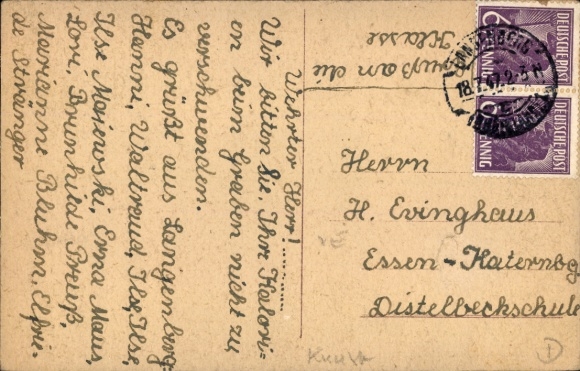 Wehrter Herr!..........
Wir bitten Sie, Ihre Kalori-
en beim Graben nicht zu
verschwenden.
Es grüßt aus Langenberg
Hanni, Waltraud, Ilse, Ilse,
Ilse Majewski, Erna Maus,
Lori, Brunhilde Preuß,
Marianne Bluhm, Elfrie-
de Stränger
Gruß an die
Klasse
DEUTSCHE POST
6 PFENNIG
DEUTSCHE POST
6 PFENNIG
LANGENBERG
(RHEINLAND)
Herrn
H. Evinghaus
Essen-Katernbg
Distelbeckschule
Kunst
D